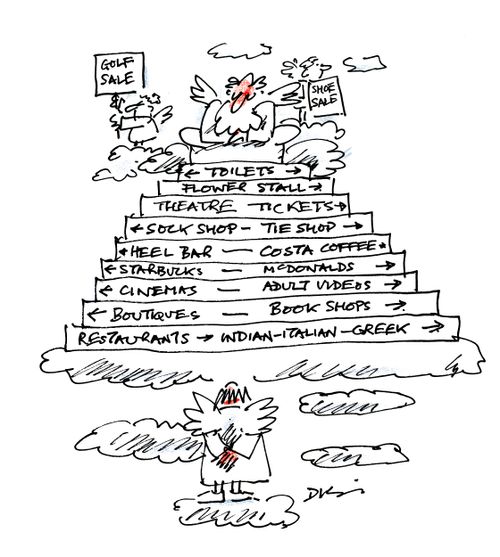 GOLF
SALE
SHOE
SALE
← TOILETS →
FLOWER STALL →
THEATRE TICKETS →
← SOCK SHOP - TIE SHOP →
HEEL BAR — COSTA COFFEE
← STARBUCKS — McDONALDS →
← CINEMAS — ADULT VIDEOS →
← BOUTIQUES — BOOK SHOPS →
RESTAURANTS → INDIAN-ITALIAN-GREEK →